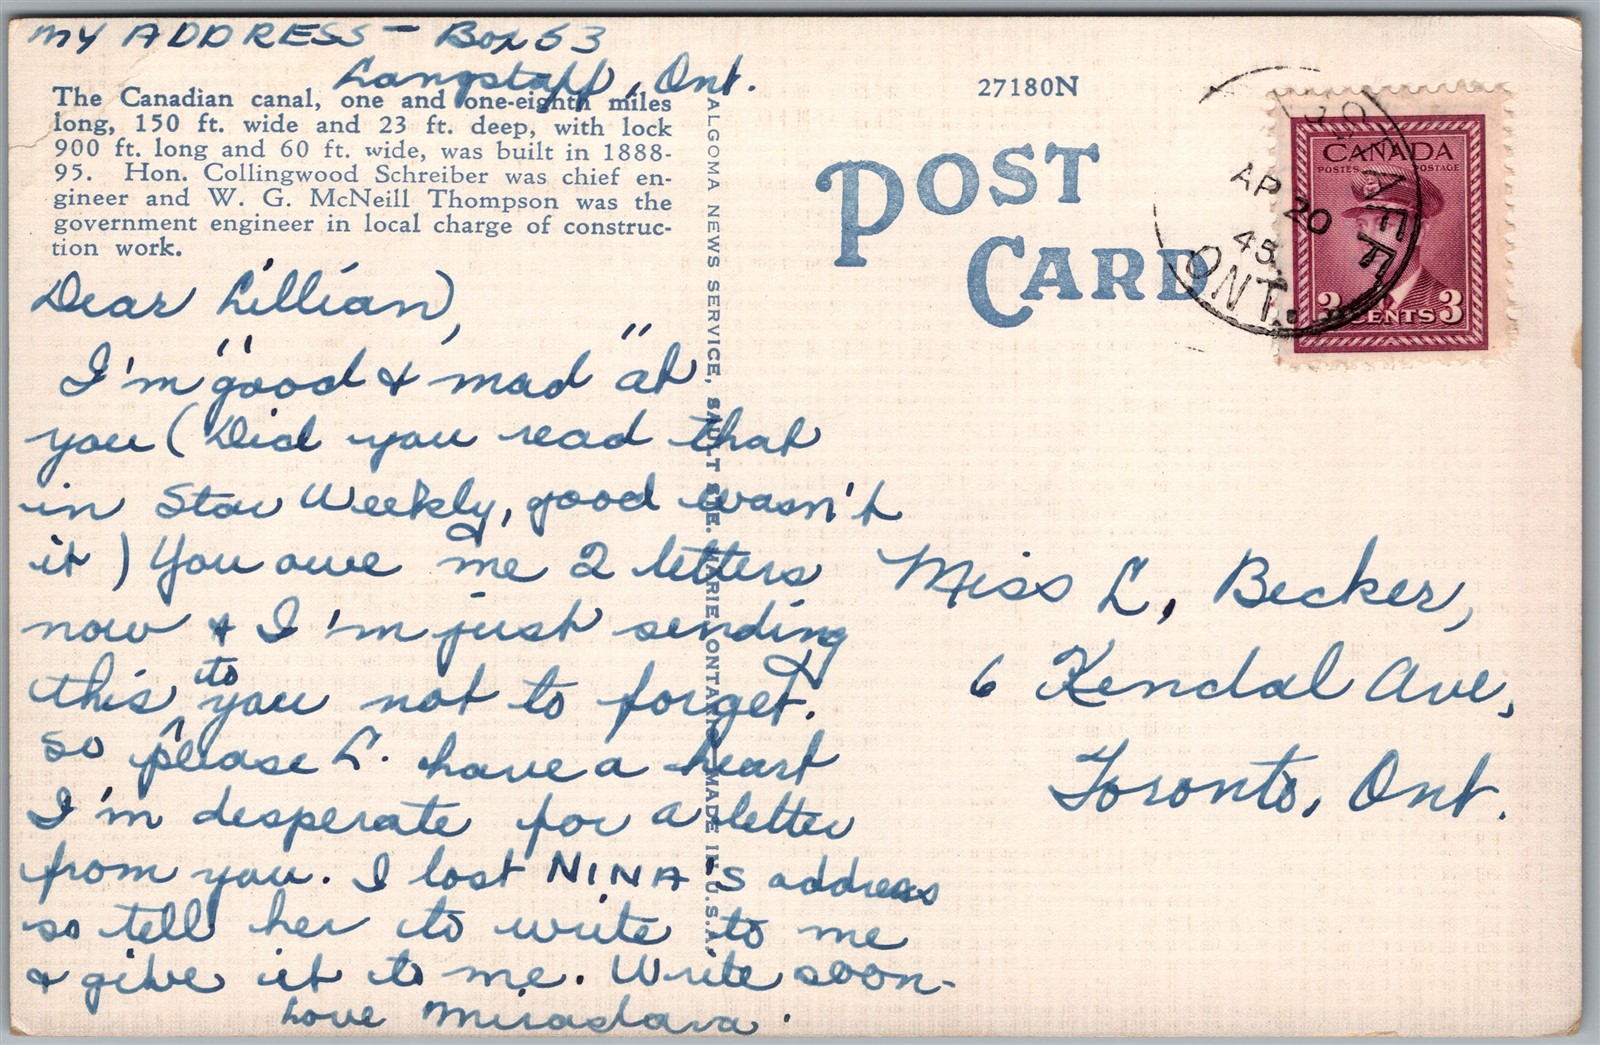 MY ADDRESS - Box 53
Langstaff, Ont.
The Canadian canal, one and one-eighth miles
long, 150 ft. wide and 23 ft. deep, with lock
900 ft. long and 60 ft. wide, was built in 1888-
95. Hon. Collingwood Schreiber was chief en-
gineer and W. G. McNeill Thompson was the
government engineer in local charge of construc-
tion work.
Dear Lillian,
I'm "good & mad" at
you (Did you read that
in Star Weekly, good wasn't
it) You owe me 2 letters
now & I'm just sending
this to you not to forget.
So please L. have a heart
I'm desperate for a letter
from you. I lost NINA'S address
so tell her to write to me
& give it to me. Write soon-
Love Miroslava.
ALGOMA NEWS SERVICE, SAULT STE. MARIE, ONTARIO MADE IN U.S.A.
27180N
POST
CARD
AP 20
45
ONT.
CANADA
POSTES POSTAGE
3 CENTS 3
Miss L. Becker,
6 Kendal Ave,
Toronto, Ont.